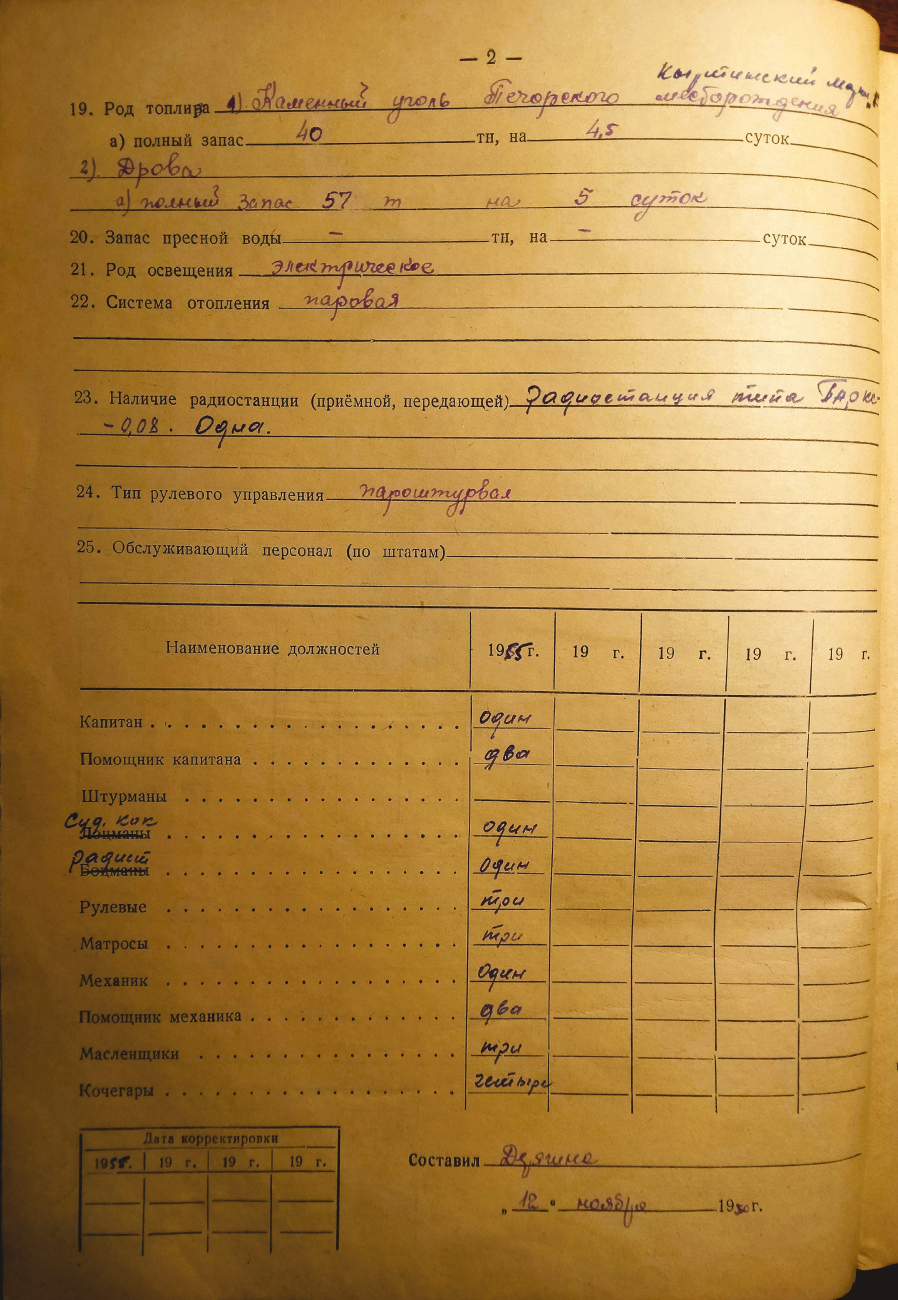 — 2 —
19. Род топлива 1) Каменный уголь Печорского месторождения
а) полный запас 40 тн, на 4,5 суток
2) Дрова
а) полный запас 57 т на 5 суток
20. Запас пресной воды — тн, на — суток
21. Род освещения электрическое
22. Система отопления паровая
23. Наличие радиостанции (приёмной, передающей) Радиостанция типа
- 0,08. Одна.
24. Тип рулевого управления пароштурвал
25. Обслуживающий персонал (по штатам)
Наименование должностей 1955г. 19 г. 19 г. 19 г. 19 г.
Капитан один
Помощник капитана два
Штурманы
Суд. кок
Лоцманы один
радист
Боцманы один
Рулевые три
Матросы три
Механик один
Помощник механика два
Масленщики три
Кочегары четыре
Дата корректировки
1955г. 19 г. 19 г. 19 г.
Составил
„12“ ноября 1950г.